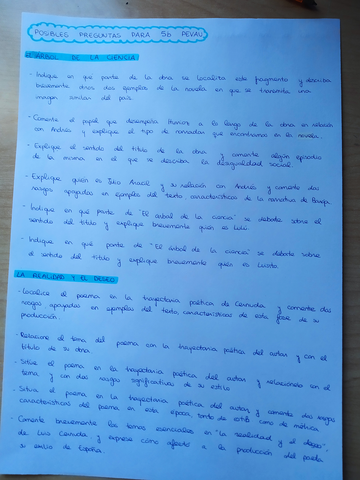 POSIBLES PREGUNTAS PARA 5b PEVAU
EL ÁRBOL DE LA CIENCIA
- Indique en qué parte de la obra se localiza este fragmento y describa
brevemente otros dos ejemplos de la novela en que se transmita una
imagen similar del país.
- Comente el papel que desempeña Iturrioz a lo largo de la obra en relación
con Andrés y explique el tipo de narrador que encontramos en la novela.
- Explique el sentido del título de la obra y comente algún episodio
de la misma en el que se describa la desigualdad social.
- Explique quién es Julio Aracil y su relación con Andrés y comente dos
rasgos apoyados en ejemplos del texto, característicos de la narrativa de Baroja.
- Indique en qué parte de "El árbol de la ciencia" se debate sobre el
sentido del título y explique brevemente quién es Lulú.
- Indique en qué parte de "El árbol de la ciencia" se debate sobre
el sentido del título y explique brevemente quién es Luisito.
LA REALIDAD Y EL DESEO
- Localice el poema en la trayectoria poética de Cernuda y comente dos
rasgos apoyados en ejemplos del texto, característicos de esta fase de su
producción.
- Relacione el tema del poema con la trayectoria poética del autor y con el
título de su obra.
- Sitúe el poema en la trayectoria poética del autor y relaciónelo con el
tema y con dos rasgos significativos de su estilo.
- Sitúe el poema en la trayectoria poética del autor y comente dos rasgos
característicos del poema en esta época, tanto de estilo como de métrica.
- Comente brevemente los temas esenciales en "la realidad y el deseo",
de Luis Cernuda y exprese cómo afectó a la producción del poeta
su exilio de España.